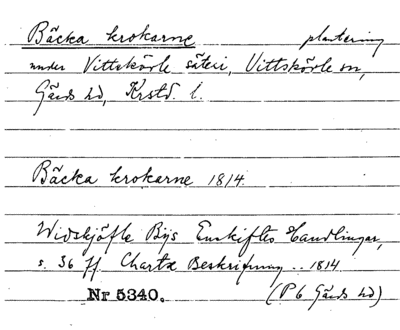 Bäcka krokarne plantering
under Vittskövle säteri, Vittskövle sn,
Gärds hd, Krstd. l.
Bäcka krokarne 1814
Widskjöfle Bijs Enskiftes Handlingar,
s. 36 ff Charta Beskrifning .. 1814
Nr 5340. (P 6 Gärds hd)